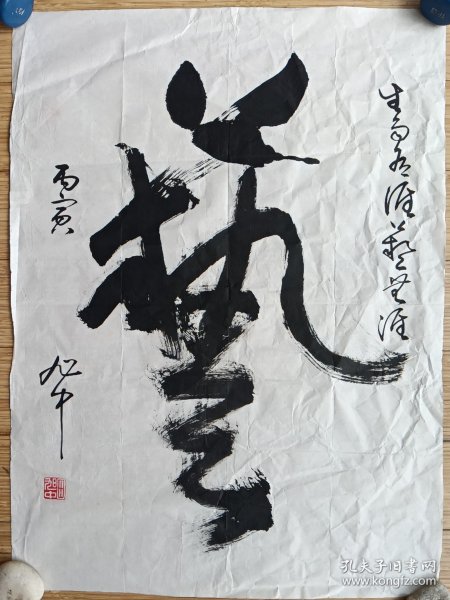 生而有涯藝無涯
藝
丙寅
旭中
孔夫子旧书网
www.kongfz.com